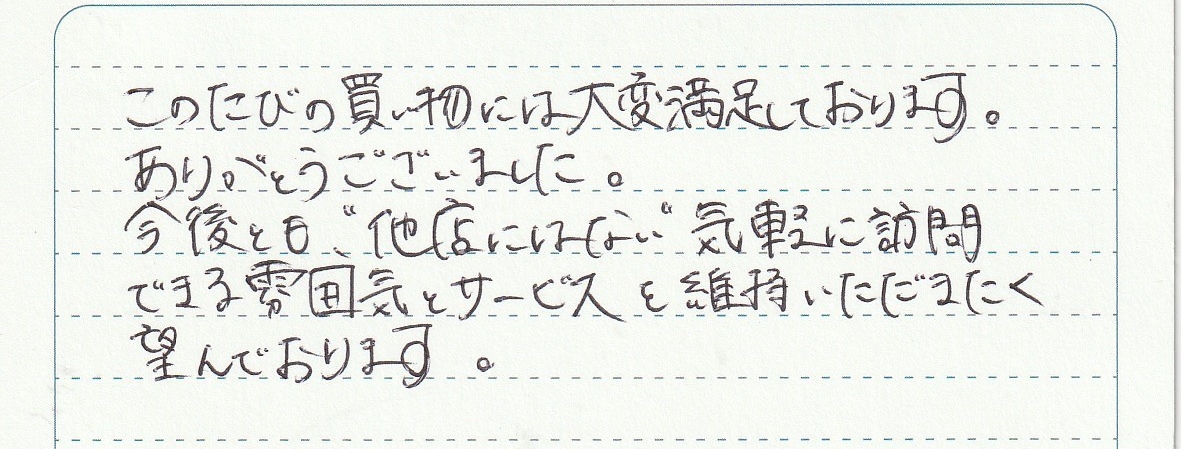 このたびの買い物には大変満足しております。
ありがとうございました。
今後とも、“他店にはない“気軽に訪問
できる雰囲気とサービスを維持いただきたく
望んでおります。